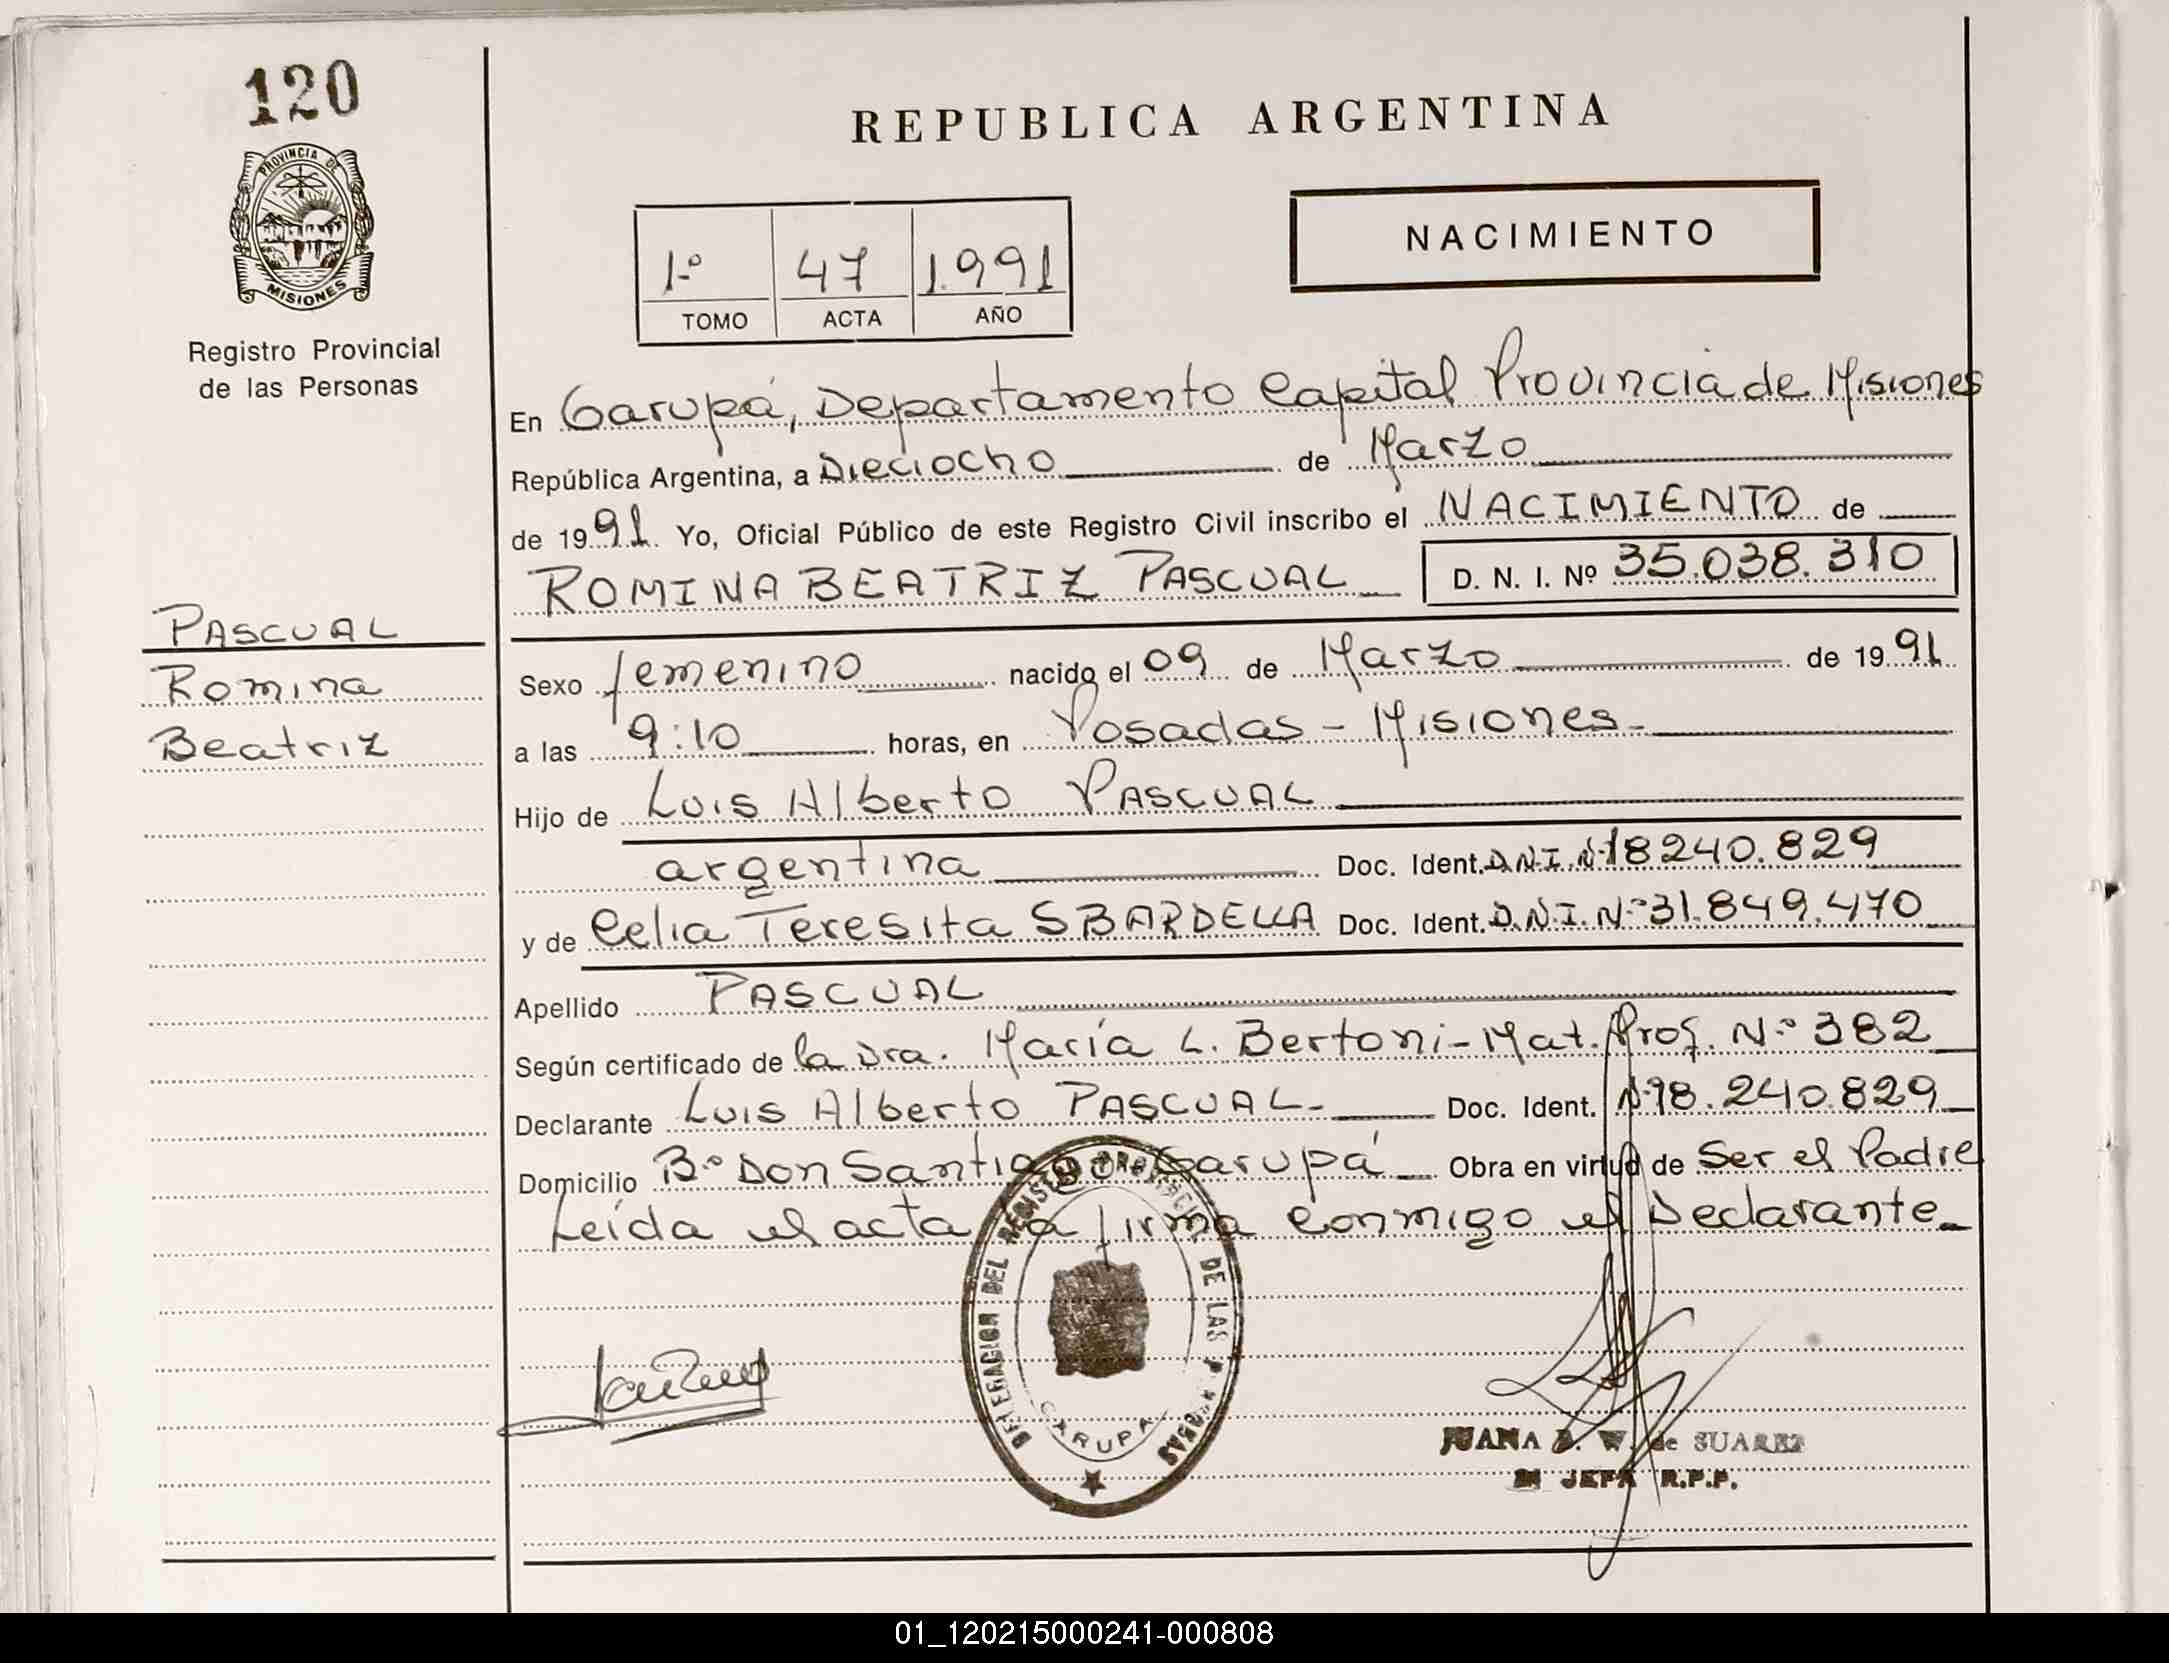 120
PROVINCIA DE
MISIONES
Registro Provincial
de las Personas
REPUBLICA ARGENTINA
NACIMIENTO
1º 47 1.991
TOMO ACTA AÑO
En Garupá, Departamento Capital Provincia de Misiones
República Argentina, a Dieciocho de Marzo
de 1991. Yo, Oficial Público de este Registro Civil inscribo el NACIMIENTO de
ROMINA BEATRIZ PASCUAL D. N. I. Nº 35.038.310
PASCUAL
Romina
Beatriz
Sexo femenino nacido el 09 de Marzo de 1991
a las 9:10 horas, en Posadas - Misiones-
Hijo de Luis Alberto PASCUAL
argentina Doc. Ident. D.N.I. Nº 18240.829
y de Celia Teresita SBARDELLA Doc. Ident. D.N.I. Nº 31.849.470
Apellido PASCUAL
Según certificado de la Dra. María L. Bertoni - Mat. Prof. Nº 382
Declarante Luis Alberto PASCUAL- Doc. Ident. Nº 18.240.829
Domicilio Bº Don Santiago Garupá Obra en virtud de Ser el Padre
Leída el acta la firma conmigo el Declarante
DELEGACION DEL REGISTRO PROVINCIAL DE LAS PERSONAS
GARUPA
JUANA W. de SUAREZ
JEFA R.P.P.
01_120215000241-000808